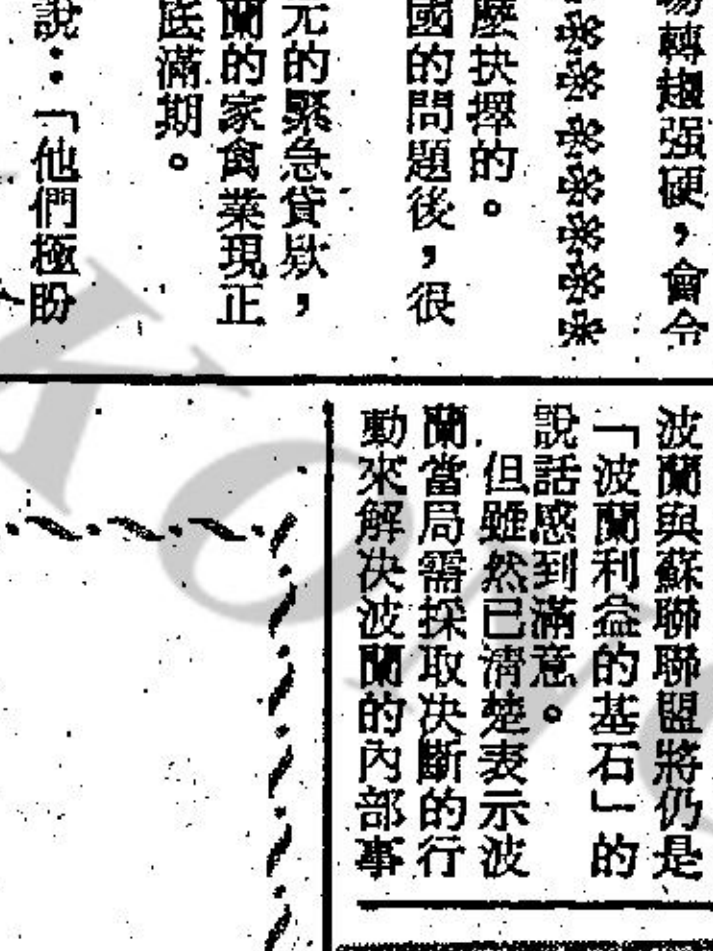 場轉趨强硬，會令
麼抉擇的。
國的問題後，很
元的緊急貸款，
蘭的家禽業現正
底滿期。
說：「他們極盼
波蘭與蘇聯聯盟將仍是
「波蘭利益的基石」的
說話感到滿意。
但雖然已清楚表示波
蘭當局需採取决斷的行
動來解决波蘭的內部事